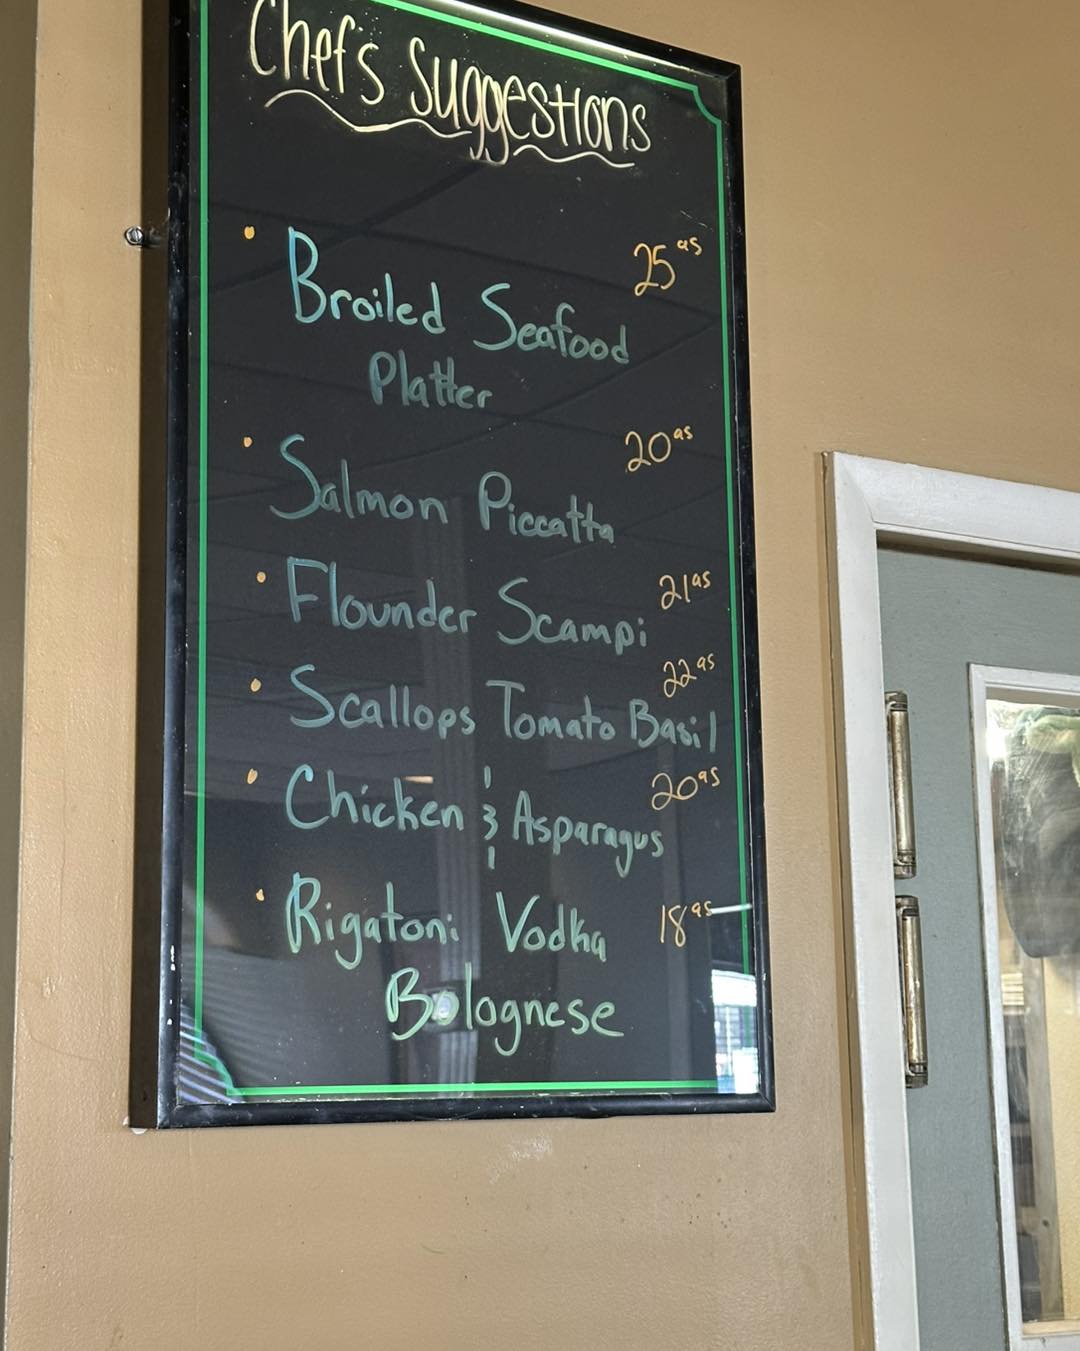 Chef's Suggestions
• Broiled Seafood 25 95
Platter
• Salmon Piccatta 20 95
• Flounder Scampi 21 95
• Scallops Tomato Basil 22 95
• Chicken & Asparagus 20 95
• Rigatoni Vodka 18 95
Bolognese